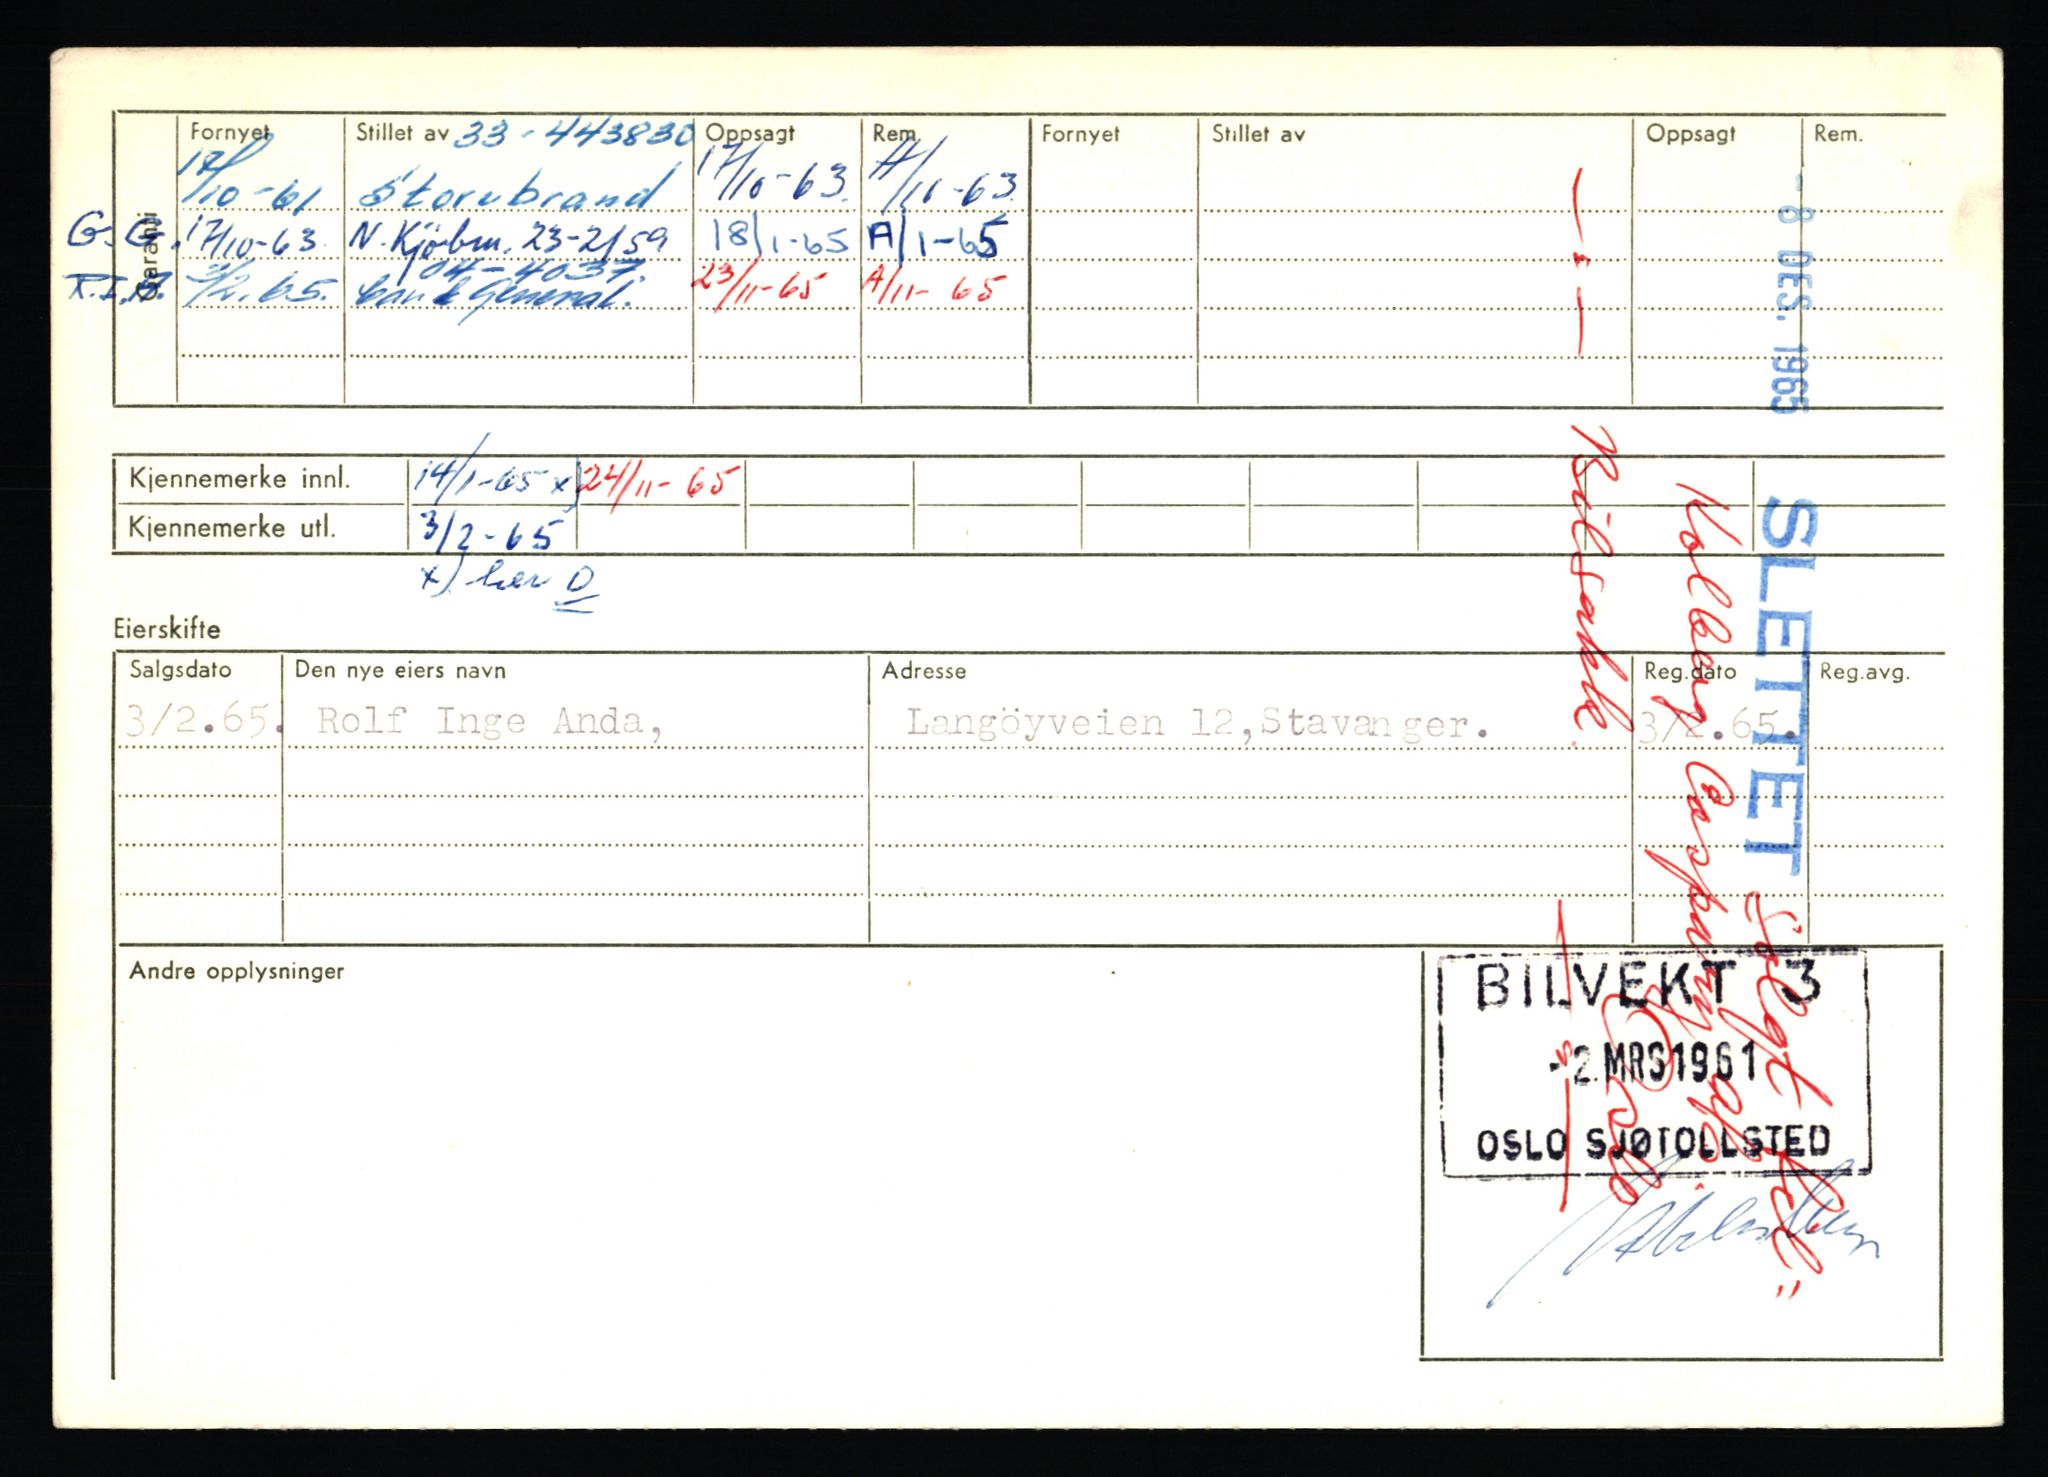 Garanti
Fornyet Stillet av 33-443830 Oppsagt Rem. Fornyet Stillet av Oppsagt Rem.
17/10-61 Storebrand 17/10-63. A/11-63
G.G. 17/10-63. N. Kjøbm. 23-2159 18/1-65 A/1-65
04-4037.
R.I.A. 3/2.65. General. 23/11-65 A/11-65
Kjennemerke innl. 14/1-65 x) 24/11-65
Kjennemerke utl. 3/2-65
x) her D
Eierskifte
Salgsdato Den nye eiers navn Adresse Reg.dato Reg.avg.
3/2.65. Rolf Inge Anda, Langöyveien 12,Stavanger. 3/2.65.
Andre opplysninger
-8 DES. 1965
SLETTET
Solgt til
Kolberg Caspary
Oslo
BILVEKT 3
-2.MRS1961
OSLO SJØTOLLSTED